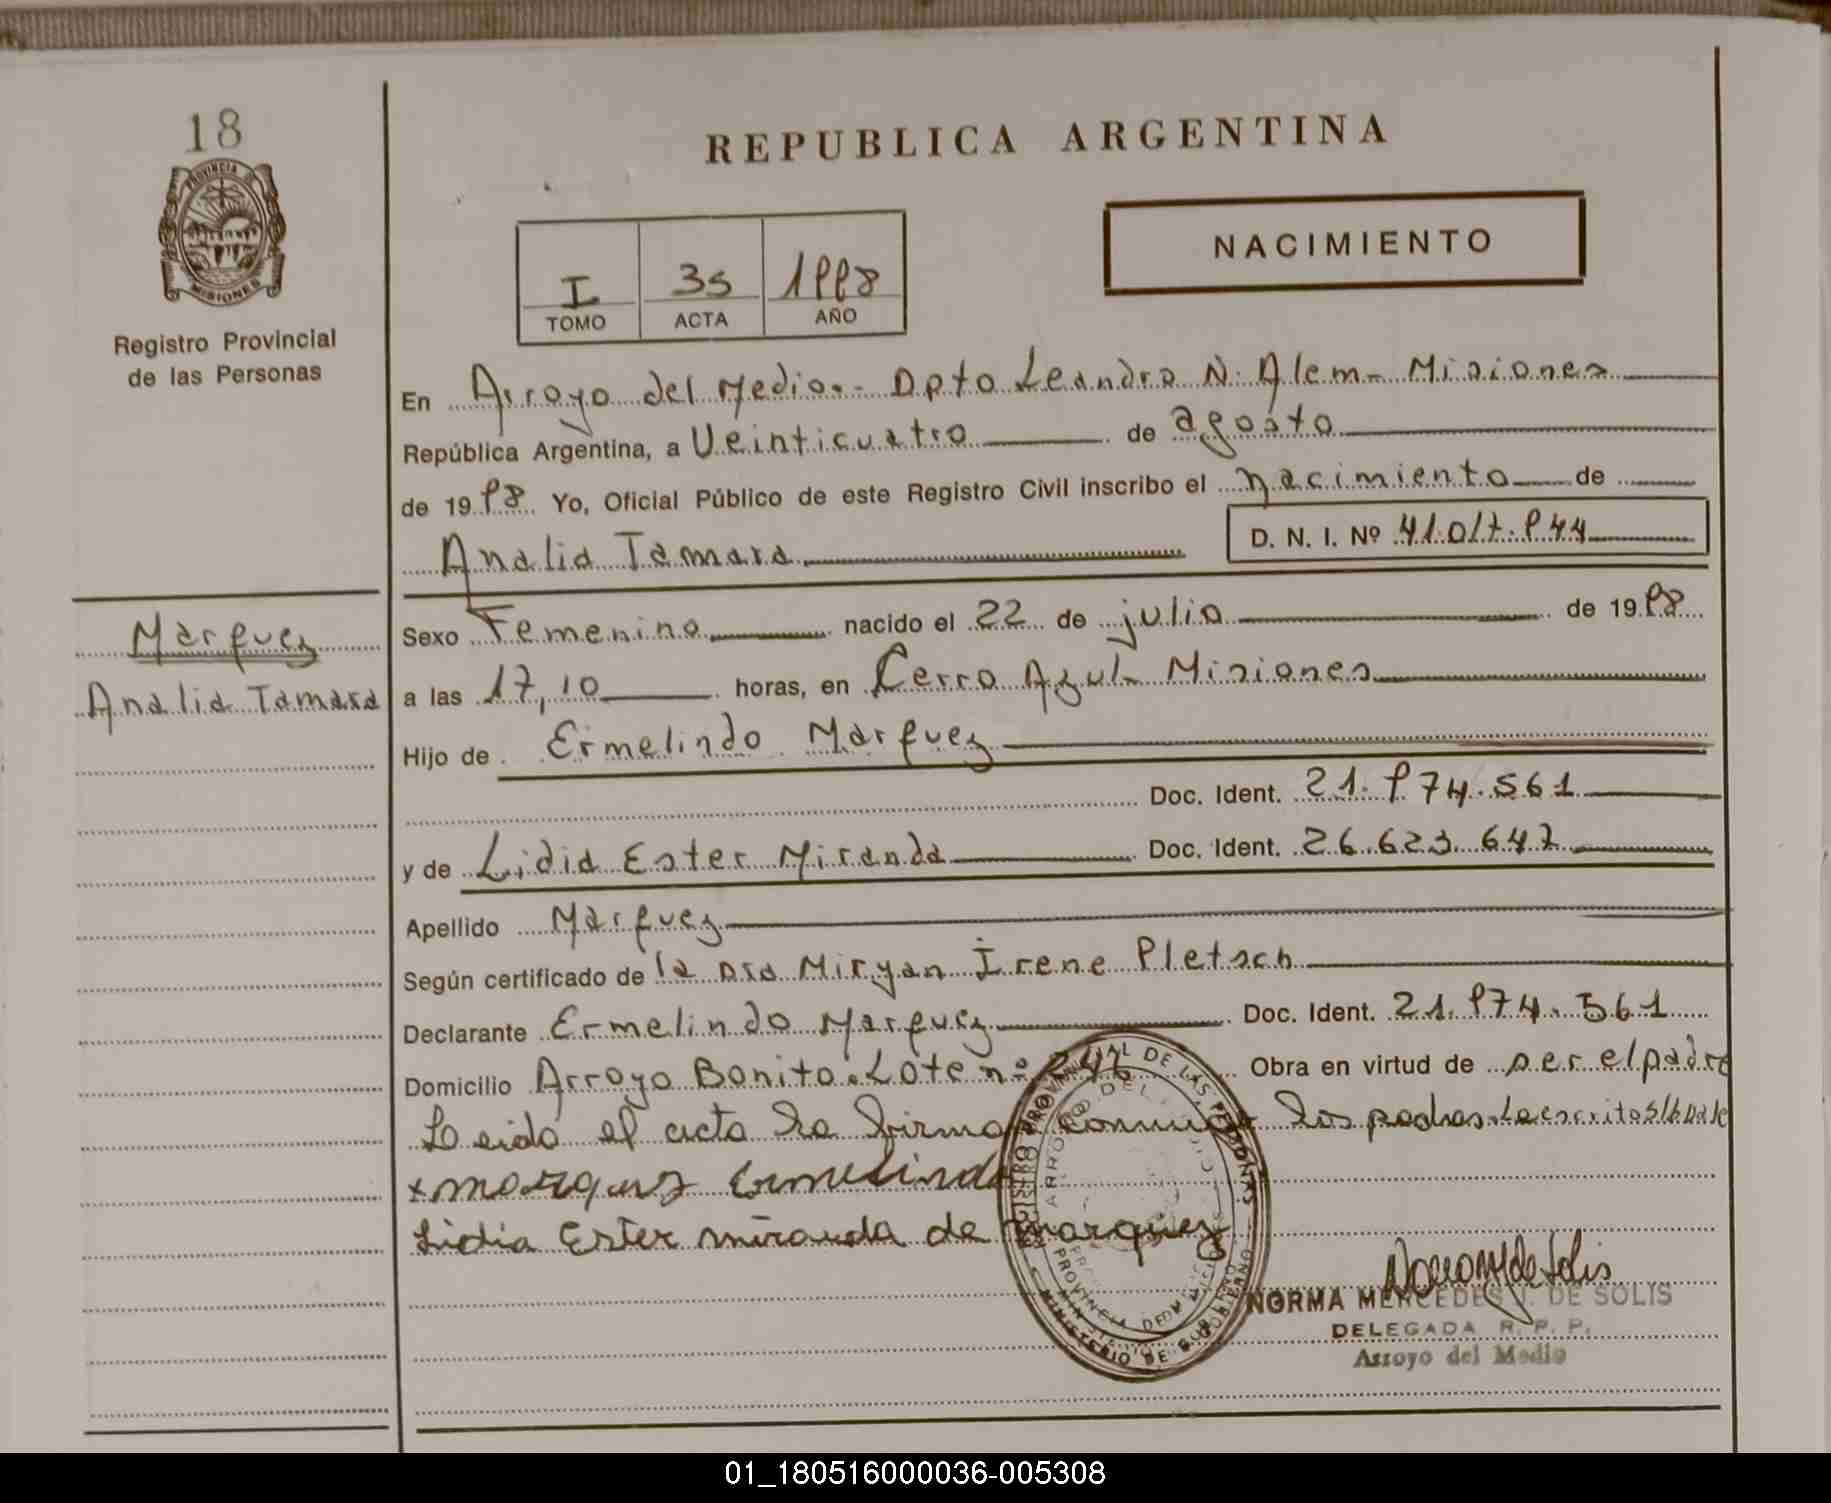 18
PROVINCIA D
MISIONES
Registro Provincial
de las Personas
REPUBLICA ARGENTINA
NACIMIENTO
I 35 1998
TOMO ACTA AÑO
En Arroyo del Medio.- Dpto Leandro N. Alem- Misiones
República Argentina, a Veinticuatro de agosto
de 1998 Yo, Oficial Público de este Registro Civil inscribo el nacimiento de
Analia Tamara D. N. I. Nº 41.017.944
Marquez
Analia Tamara
Sexo Femenino nacido el 22 de julio de 1998
a las 17,10 horas, en Cerro Azul- Misiones
Hijo de Ermelindo Marquez
Doc. Ident. 21.974.561
y de Lidia Ester Miranda Doc. Ident. 26.623.647
Apellido Marquez
Según certificado de la Dra Miryan Irene Pletsch
Declarante Ermelindo Marquez Doc. Ident. 21.974.561
Domicilio Arroyo Bonito. Lote nº Obra en virtud de ser el padre
Leido el acta la firman conmigo los padres.
x marquez Ermelindo
Lidia Ester miranda de marquez
NORMA MERCEDES V. DE SOLIS
DELEGADA R. P. P.
Arroyo del Medio
01_180516000036-005308